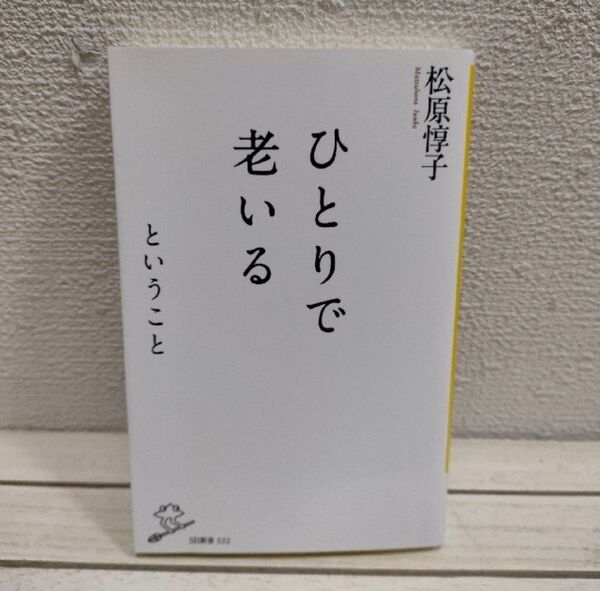 松原惇子
Matsubara Junko
ひとりで
老いる
ということ
SB新書 522